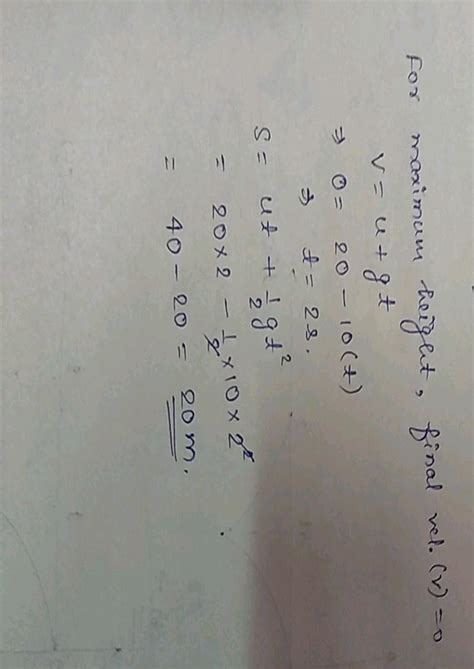 For maximum height, final vel. (v) = 0
V = u + gt
⇒ 0 = 20 − 10(t)
⇒ t = 2s.
S = ut + 1/2 gt²
= 20 × 2 − 1/2 × 10 × 2²
= 40 − 20 = 20m.